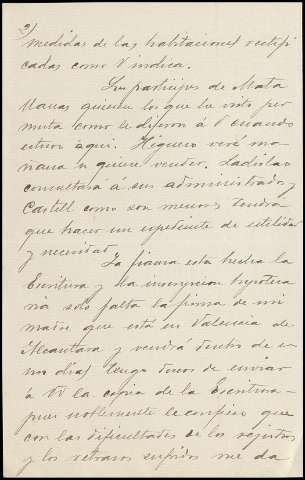 3)
medidas de las habitaciones rectifi
cadas como V indica.
Los participes de Mata
quieren los que la
muta como le dijeron á V cuando
estuvo aqui. Higuero verá ma
ñana si quiere vender. Ladislao
consultará á sus administrados y
Castell como son menores tendrá
que hacer un espediente de utilidad
y necesidad.
La fianza esta hecha la
Escritura y la inscripcion hipoteca
ria solo falta la firma de mi
madre que está en Valencia de
Alcantara y vendrá dentro de u
nos dias luego de enviar
á V la copia de la Escritura
pues noblemente le confieso que
con las dificultades de los registros
y los retrasos sufridos me da